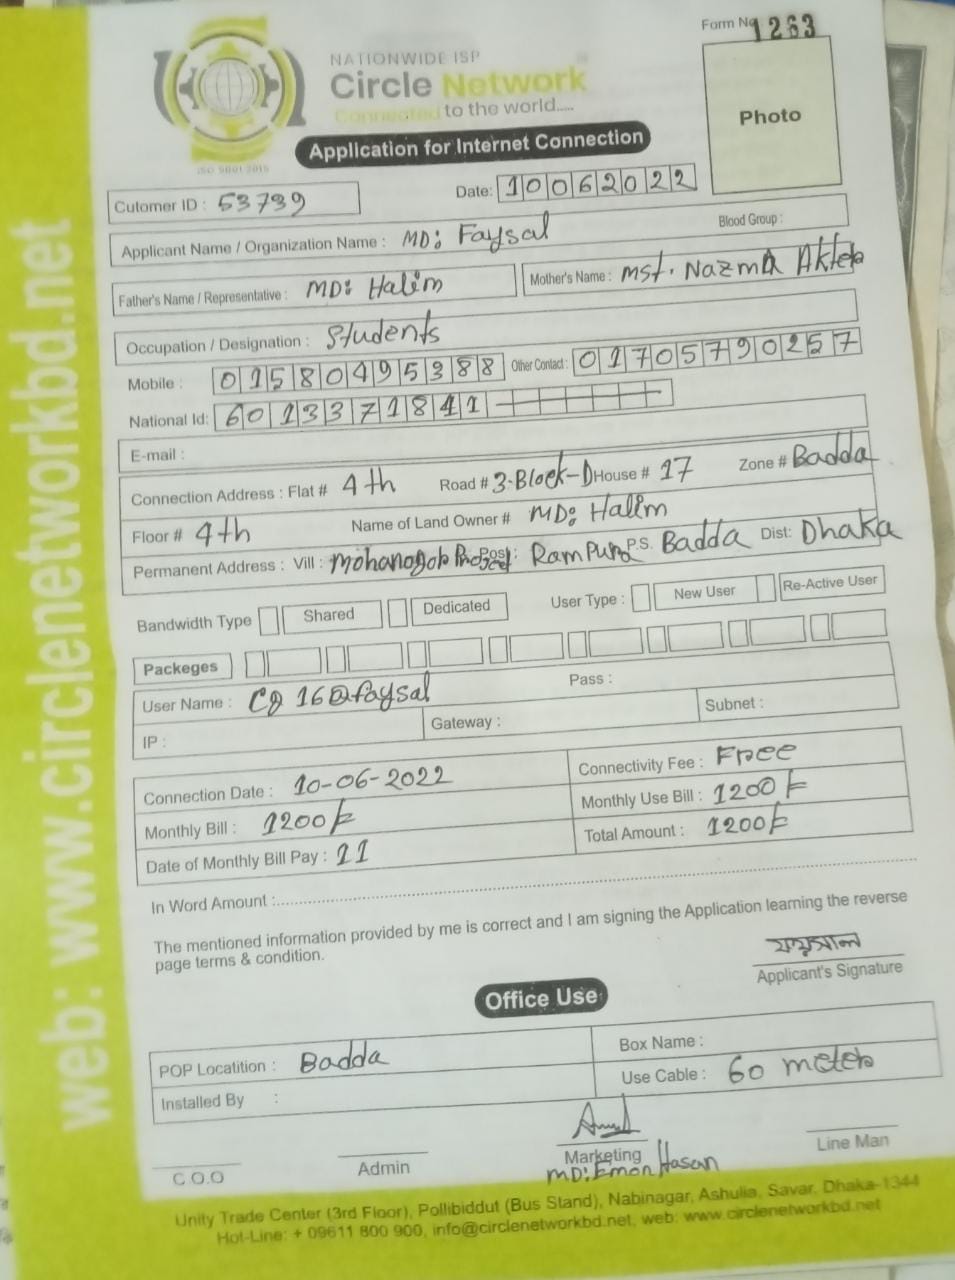 Form No 1263
NATIONWIDE ISP
Circle Network
Connected to the world.....
ISO 9001:2015
Application for Internet Connection
Photo
Cutomer ID : 53739
Date: 10062022
Applicant Name / Organization Name : MD: Faysal
Blood Group :
Father's Name / Representative : MD: Halim
Mother's Name : mst. Nazma Akter
Occupation / Designation : Students
Mobile : 01580495388 Other Contact : 01705790257
National Id: 6013371841
E-mail :
Connection Address : Flat # 4th Road # 3-Block-D House # 17 Zone # Badda
Floor # 4th Name of Land Owner # MD: Halim
Permanent Address : Vill : Mohanogor Project Post : Rampura P.S. Badda Dist: Dhaka
Bandwidth Type Shared Dedicated User Type : New User Re-Active User
Packeges
User Name : 16@faysal Pass :
IP : Gateway : Subnet :
Connection Date : 10-06-2022 Connectivity Fee : Free
Monthly Bill : 1200 Monthly Use Bill : 1200
Date of Monthly Bill Pay : 11 Total Amount : 1200
In Word Amount :
The mentioned information provided by me is correct and I am signing the Application learning the reverse
page terms & condition.
ফয়সাল
Applicant's Signature
Office Use
POP Locatition : Badda Box Name :
Installed By : Use Cable : 60 meter
C.O.O Admin Marketing Line Man
MD: Emon Hasan
Unity Trade Center (3rd Floor), Pollibiddut (Bus Stand), Nabinagar, Ashulia, Savar, Dhaka-1344
Hot-Line: + 09611 800 900, info@circlenetworkbd.net, web: www.circlenetworkbd.net
web: www.circlenetworkbd.net